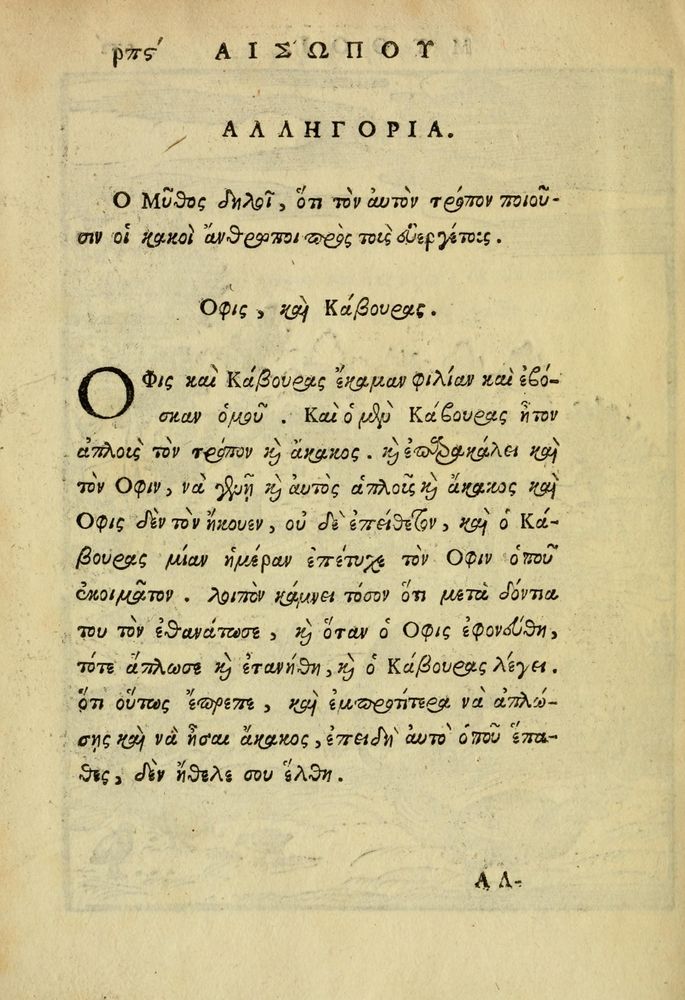 ρπϛʹ ΑΙΣΩΠΟΥ
ΑΛΛΗΓΟΡΙΑ.
Ο Μῦθος δηλοῖ, ὅτι τὸν ἀυτὸν τρόπον ποιοῦ-
σιν οἱ κακοὶ ἄνθρωποι πρὸς τοὶς ἐυεργέτοις.
Οφις, καὶ Κάβουρας.
ΟΦις καὶ Κάβουρας ἔκαμαν φιλίαν καὶ ἐβό-
σκαν ὁμοῦ. Καὶ ὁ μὲν Κάβουρας ἦτον
ἁπλοὶς τὸν τρόπον κὶ ἄκακος. κὶ ἐπαρακάλει καὶ
τὸν Οφιν, νὰ γενῇ κὶ ἀυτὸς ἁπλοῖς κὶ ἄκακος καὶ
Οφις δὲν τὸν ἤκουεν, οὐ δὲ ἐπείθετον, καὶ ὁ Κά-
βουρας μίαν ἡμέραν ἐπέτυχε τὸν Οφιν ὁποῦ
ἐκοιμᾶτον. λοιπὸν κάμνει τόσον ὅτι μετὰ δόντια
του τὸν ἐθανάτωσε, κὶ ὅταν ὁ Οφις ἐφονεύθη,
τότε ἅπλωσε κὶ ἐτανήθη, κὶ ὁ Κάβουρας λέγει.
ὅτι οὕτως ἔπρεπε, καὶ ἐμπροτίτερα νὰ ἁπλώ-
σῃς καὶ νὰ ἦσαι ἄκακος, ἐπειδὴ αὐτὸ ὁποῦ ἔπα-
θες, δὲν ἤθελε σου ἔλθη.
ΑΛ-